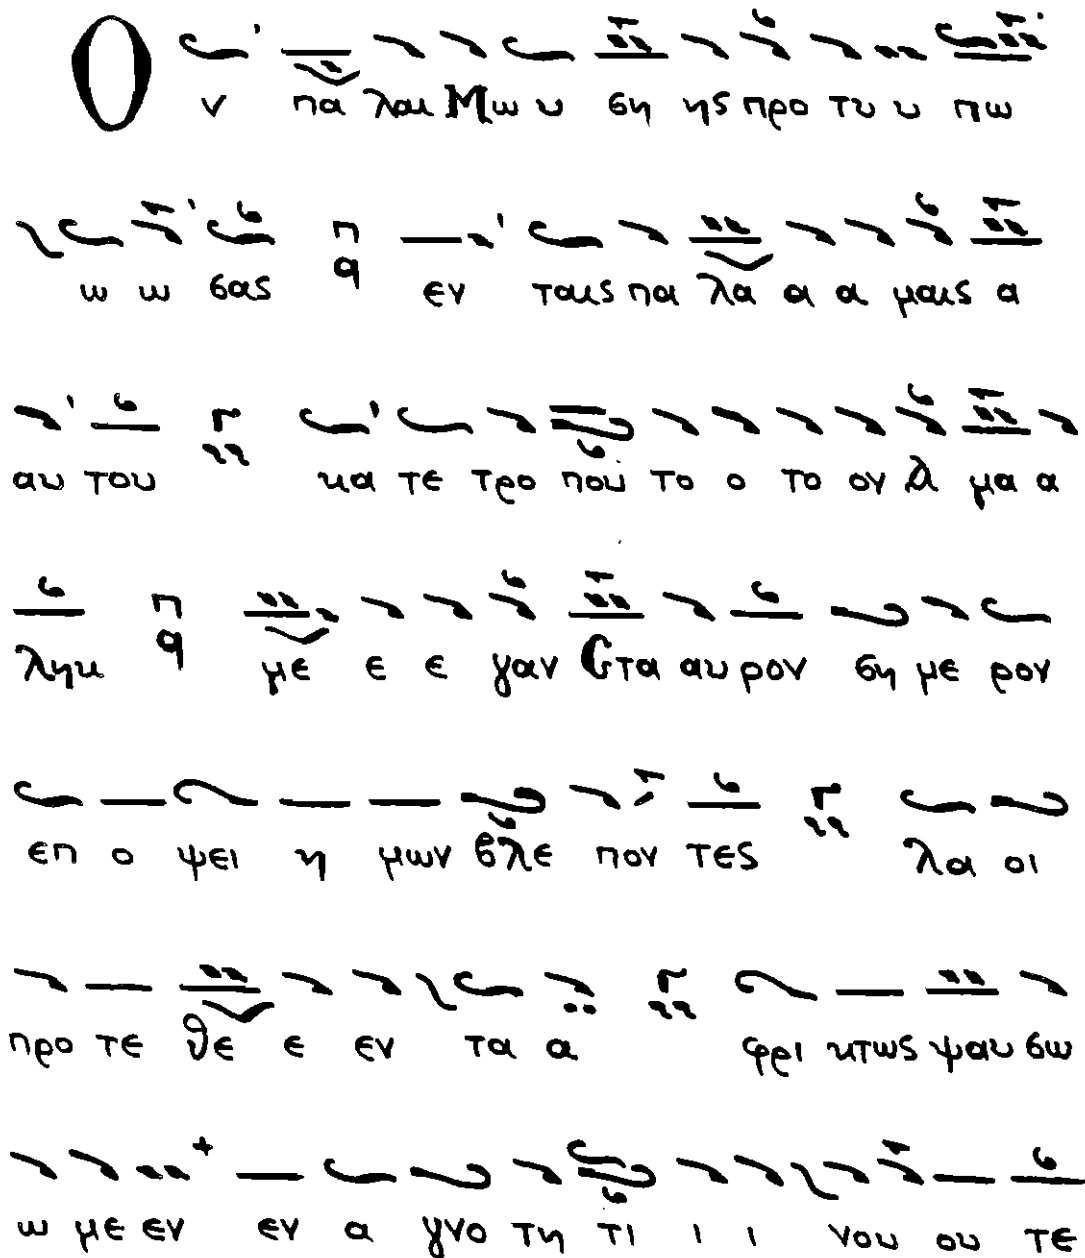 Ο ν πα λαι Μω υ ση ης προ τυ υ πω
ω ω σας π α εν ταις πα λα α α μαις α
αυ του κα τε τρο που το ο το ον Α μα α
ληκ π α με ε ε γαν Στα αυ ρον ση με ρον
επ ο ψει η μων βλε πον τες λα οι
προ τε θε ε εν τα α φρι κτως ψαυ σω
ω με εν εν α γνο τη τι ι ι νου ου τε